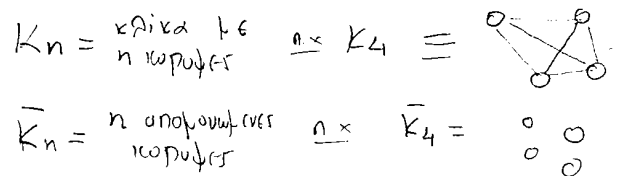 Kn = κλίκα με
n κορυφες n x K4 ≡
K̄n = n απομονωμενες
κορυφες n x K̄4 =